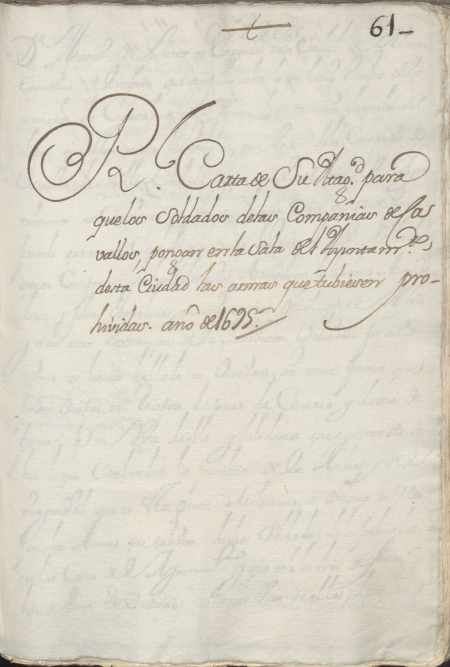 61-
Rl. Carta de Su Magd. para
que los Soldados de las Compañias de Ca
vallos, pongan en la Sala del Ayuntamto.
desta Ciudad las armas que tubiesen pro-
hividas. año de 1695.